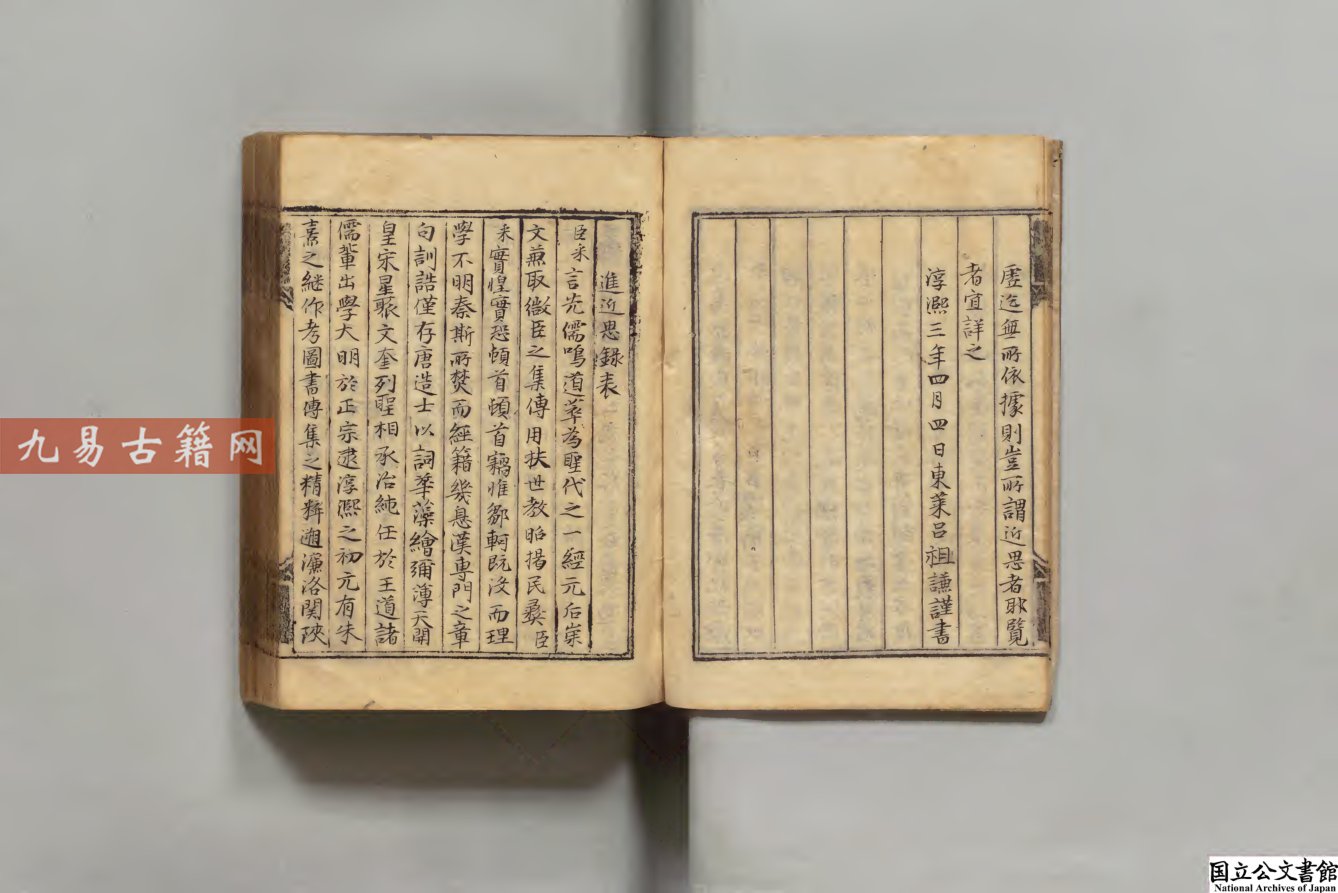 虛迄無所依據則豈所謂近思者耶覽
者宜詳之
淳熙三年四月四日東萊呂祖謙謹書
進近思錄表
臣采言先儒鳴道萃為聖代之一經元后崇
文兼取微臣之集傳用扶世教昭揚民彝臣
采實惶實恐頓首頓首竊惟鄒軻旣沒而理
學不明秦斯所焚而經籍幾息漢專門之章
句訓詁僅存唐造士以詞華藻繪彌薄天開
皇宋星聚文奎列聖相承治純任於王道諸
儒輩出學大明於正宗逮淳熙之初元有朱
熹之継作考圖書傳集之精粹遡濂洛関陜
九易古籍网
国立公文書館
National Archives of Japan